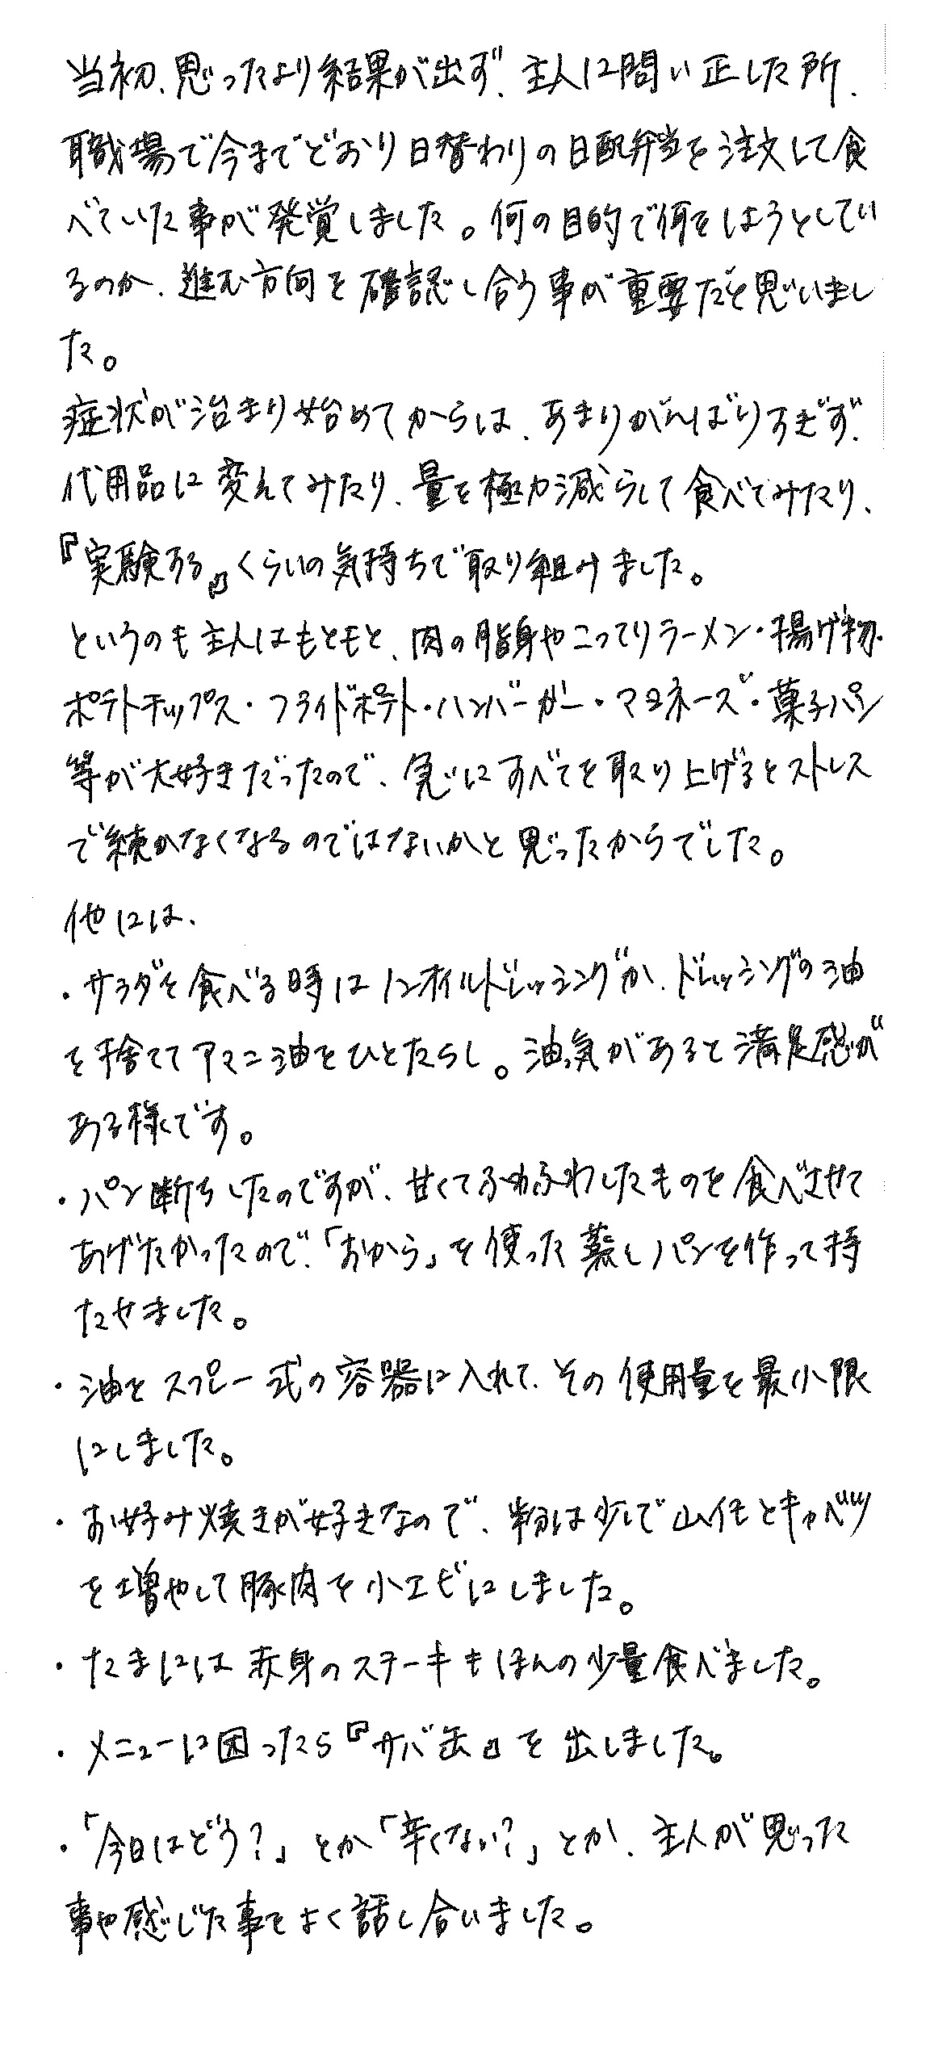 当初、思ったより結果が出ず、主人に問い正した所、
職場で今までどおり日替わりの日配弁当を注文して食
べていた事が発覚しました。何の目的で何をしようとしてい
るのか、進む方向を確認し合う事が重要だと思いまし
た。
症状が治まり始めてからは、あまりがんばりすぎず、
代用品に変えてみたり、量を極力減らして食べてみたり、
『実験する』くらいの気持ちで取り組みました。
というのも主人はもともと、肉の脂身やこってりラーメン・揚げ物・
ポテトチップス・フライドポテト・ハンバーガー・マヨネーズ・菓子パン
等が大好きだったので、急にすべてを取り上げるとストレス
で続かなくなるのではないかと思ったからでした。
他には、
・サラダを食べる時はノンオイルドレッシングか、ドレッシングの油
を捨ててアマニ油をひとたらし。油気があると満足感が
ある様です。
・パン断ちしたのですが、甘くてふわふわしたものを食べさせて
あげたかったので、「おから」を使った蒸しパンを作って持
たせました。
・油をスプレー式の容器に入れて、その使用量を最小限
にしました。
・お好み焼きが好きなので、粉は少しで山イモとキャベツ
を増やして豚肉を小エビにしました。
・たまには赤身のステーキもほんの少量食べました。
・メニューに困ったら『サバ缶』を出しました。
・「今日はどう？」とか「辛くない？」とか、主人が思った
事や感じた事をよく話し合いました。